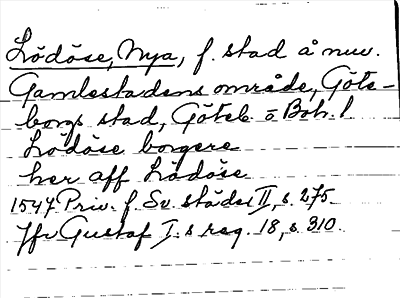 Lödöse, Nya, f. stad å nuv.
Gamlestadens område, Göte-
borgs stad, Göteb. o Boh. l
Lödöse borgere
her aff Lödöse
1547 Priv. f. Sv. städer II, s. 275
Jfr Gustaf I:s reg. 18, s. 310.